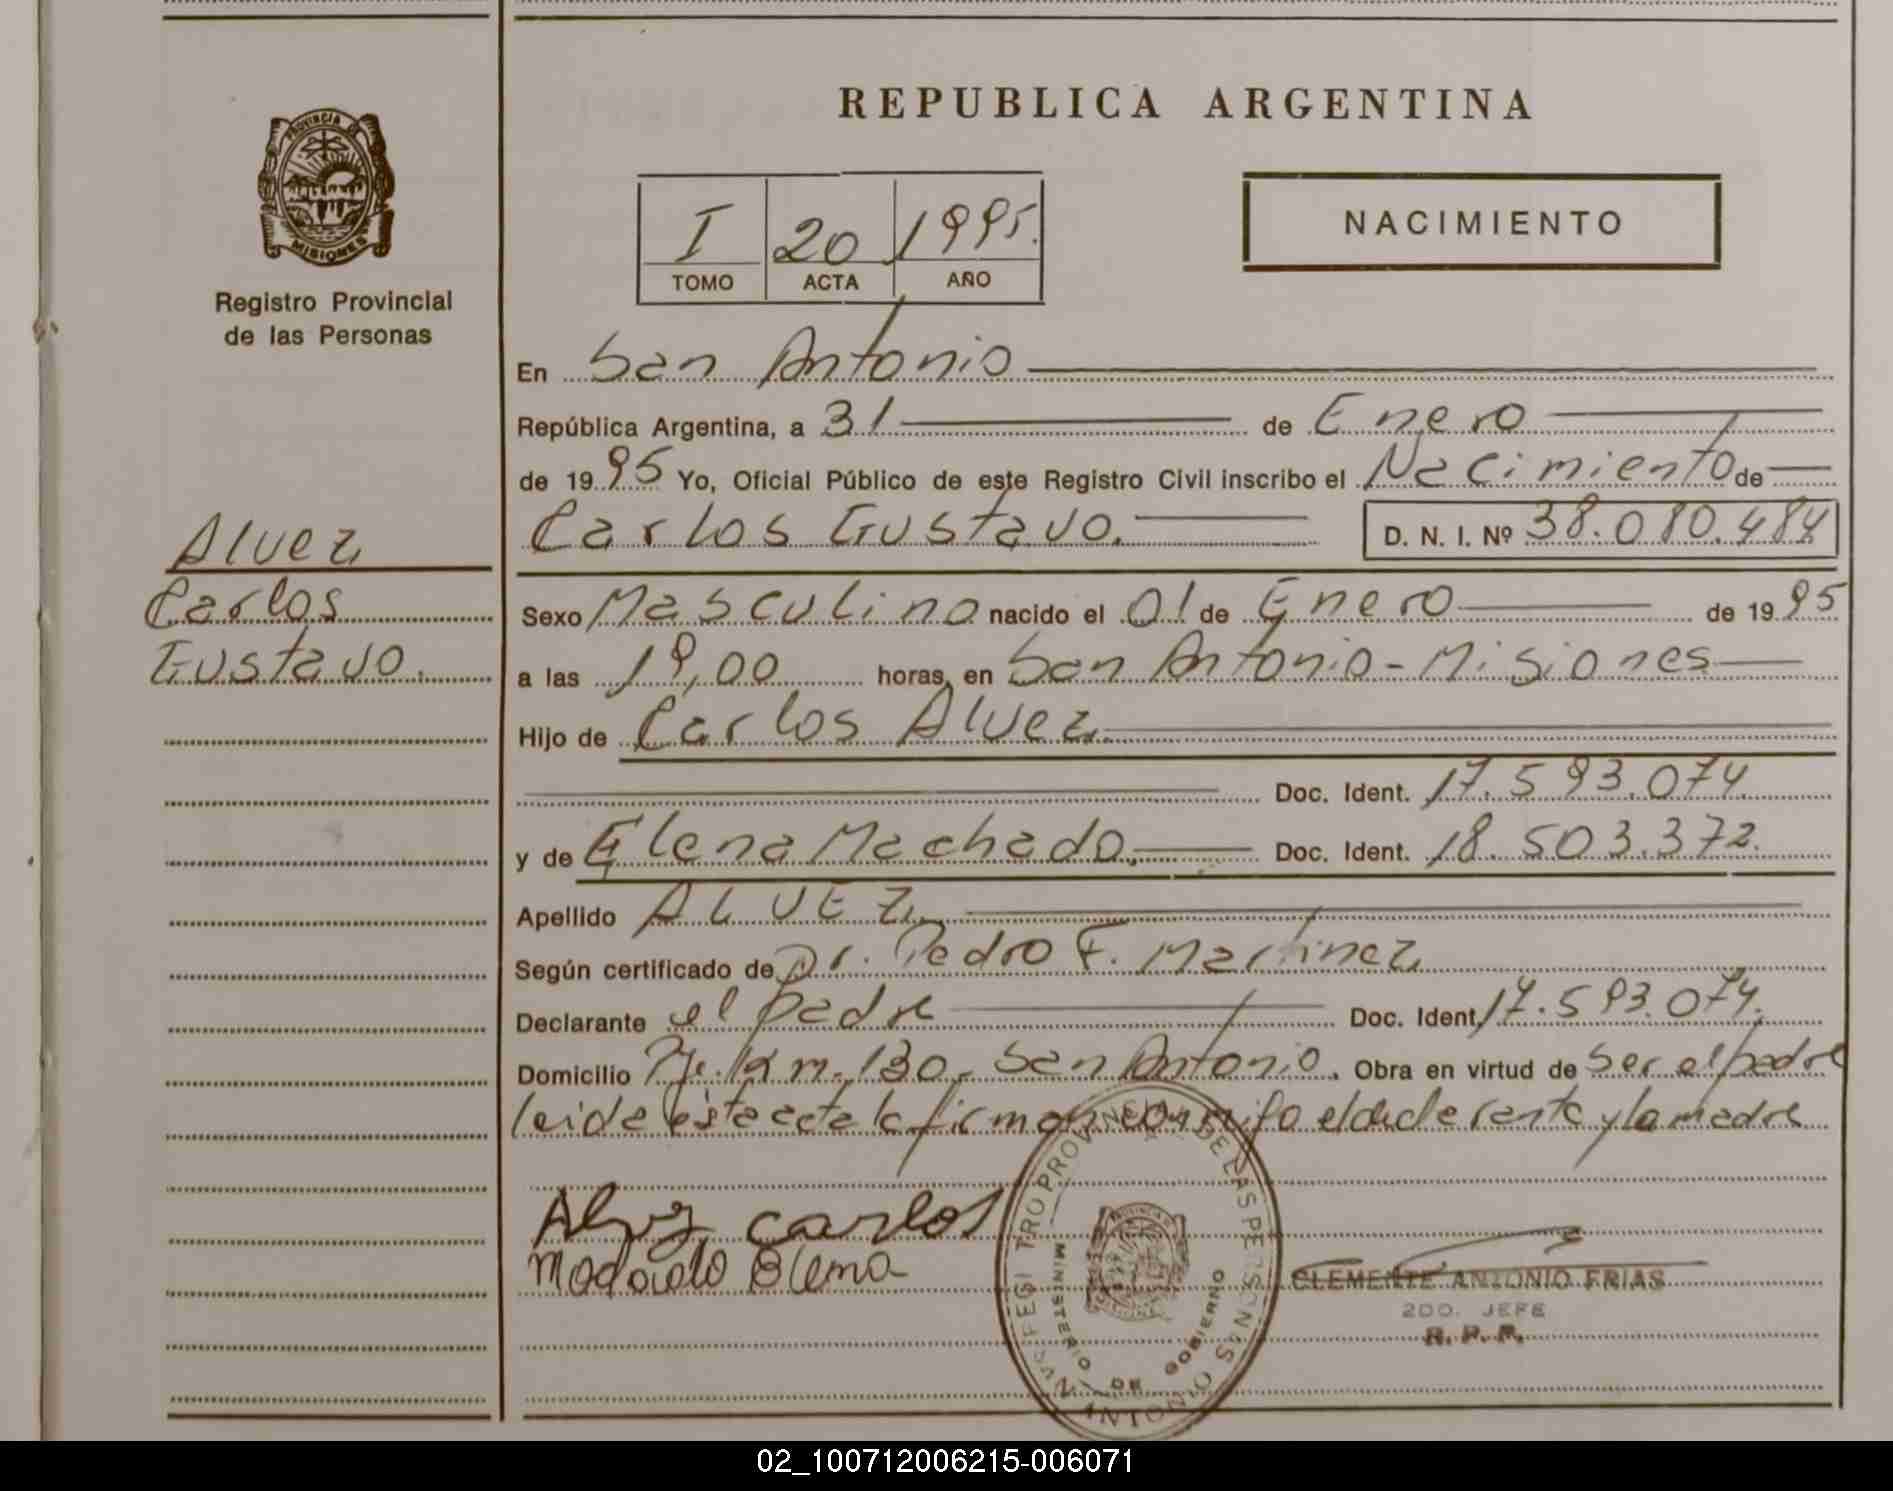 REPUBLICA ARGENTINA
PROVINCIA DE
MISIONES
Registro Provincial
de las Personas
I 20 1995.
TOMO ACTA AÑO
NACIMIENTO
En San Antonio
República Argentina, a 31 de Enero
de 1995 Yo, Oficial Público de este Registro Civil inscribo el Nacimiento de
Carlos Gustavo. D. N. I. Nº 38.080.484
Alvez
Carlos
Gustavo.
Sexo Masculino nacido el 01 de Enero de 1995
a las 19,00 horas, en San Antonio - Misiones
Hijo de Carlos Alvez
Doc. Ident. 17.593.074
y de Elena Machado. Doc. Ident. 18.503.372.
Apellido ALVEZ
Según certificado de Dr. Pedro F. Martinez
Declarante el padre Doc. Ident. 17.593.074.
Domicilio Km. 130 - San Antonio. Obra en virtud de ser el padre
leida esta acta la firman conmigo el declarante y la madre
Alvez carlos
Machado Elena
REGISTRO PROVINCIAL DE LAS PERSONAS
MINISTERIO DE GOBIERNO
SAN ANTONIO
CLEMENTE ANTONIO FRIAS
2DO. JEFE
R. P. P.
02_100712006215-006071